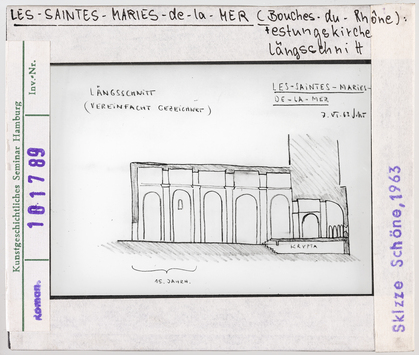 LES-SAINTES-MARIES-de-la-MER (Bouches-du-Rhône):
Festungskirche
Längsschnitt
Kunstgeschichtliches Seminar Hamburg
Inv.-Nr.
101789
roman.
LÄNGSSCHNITT
(VEREINFACHT GEZEICHNET)
LES-SAINTES-MARIES-
DE-LA-MER
KRYPTA
15. JAHRH.
Skizze Schöne, 1963